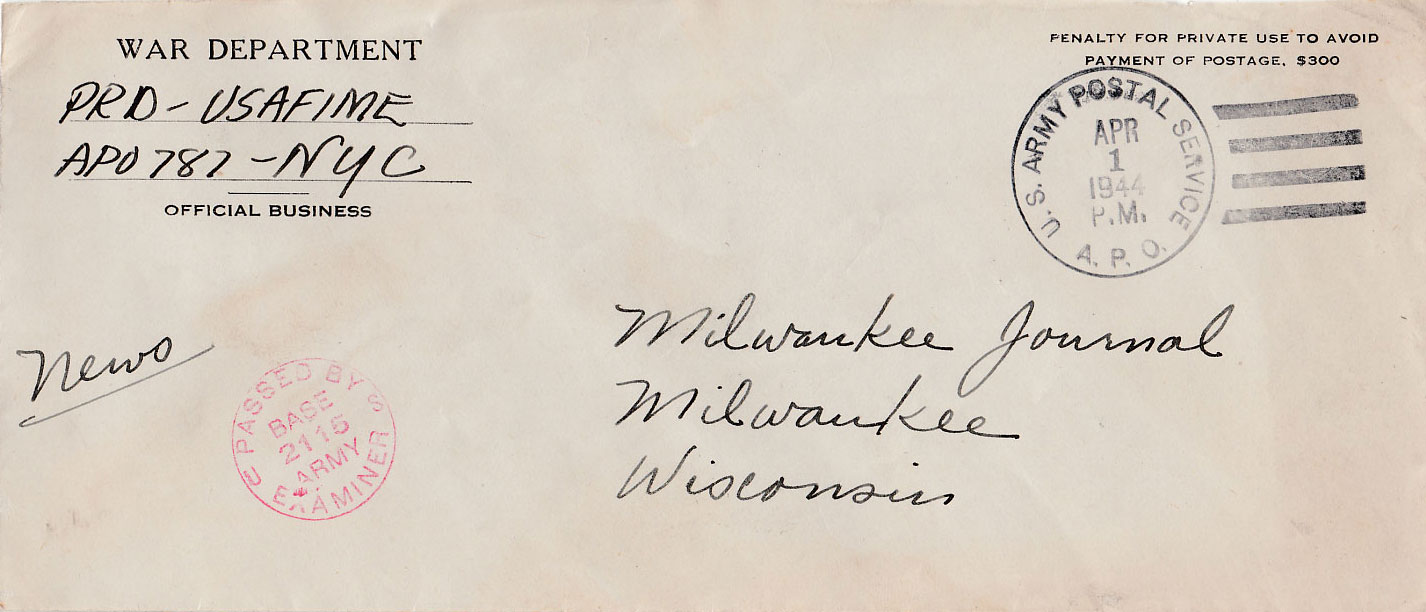 WAR DEPARTMENT
PRD - USAFIME
APO 787 - NYC
OFFICIAL BUSINESS
PENALTY FOR PRIVATE USE TO AVOID
PAYMENT OF POSTAGE, $300
U.S. ARMY POSTAL SERVICE
APR
1
1944
P.M.
A. P. O.
News
PASSED BY
BASE
2115
ARMY
EXAMINER
Milwaukee Journal
Milwaukee
Wisconsin